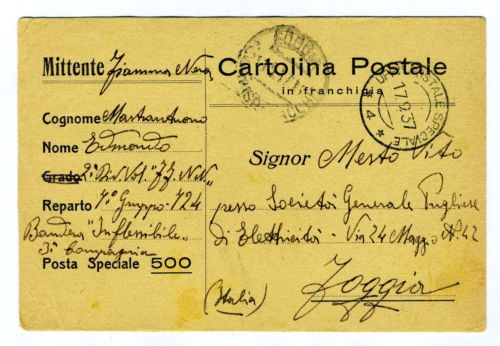 Mittente Fiamma Nera
Cognome Mastrantuono
Nome Edmondo
Grado 2ª Div. Vol. "FF. NN."
Reparto 7° Gruppo 724
Bandera "Inflessibile"
3ª Compagnia
Posta Speciale 500
Cartolina Postale
in franchigia
UFFICIO POSTALE SPECIALE
17.9.37
* 4 *
Signor Merto Vito
presso Società Generale Pugliese
di Elettricità - Via 24 Maggio N. 42
Foggia
(Italia)